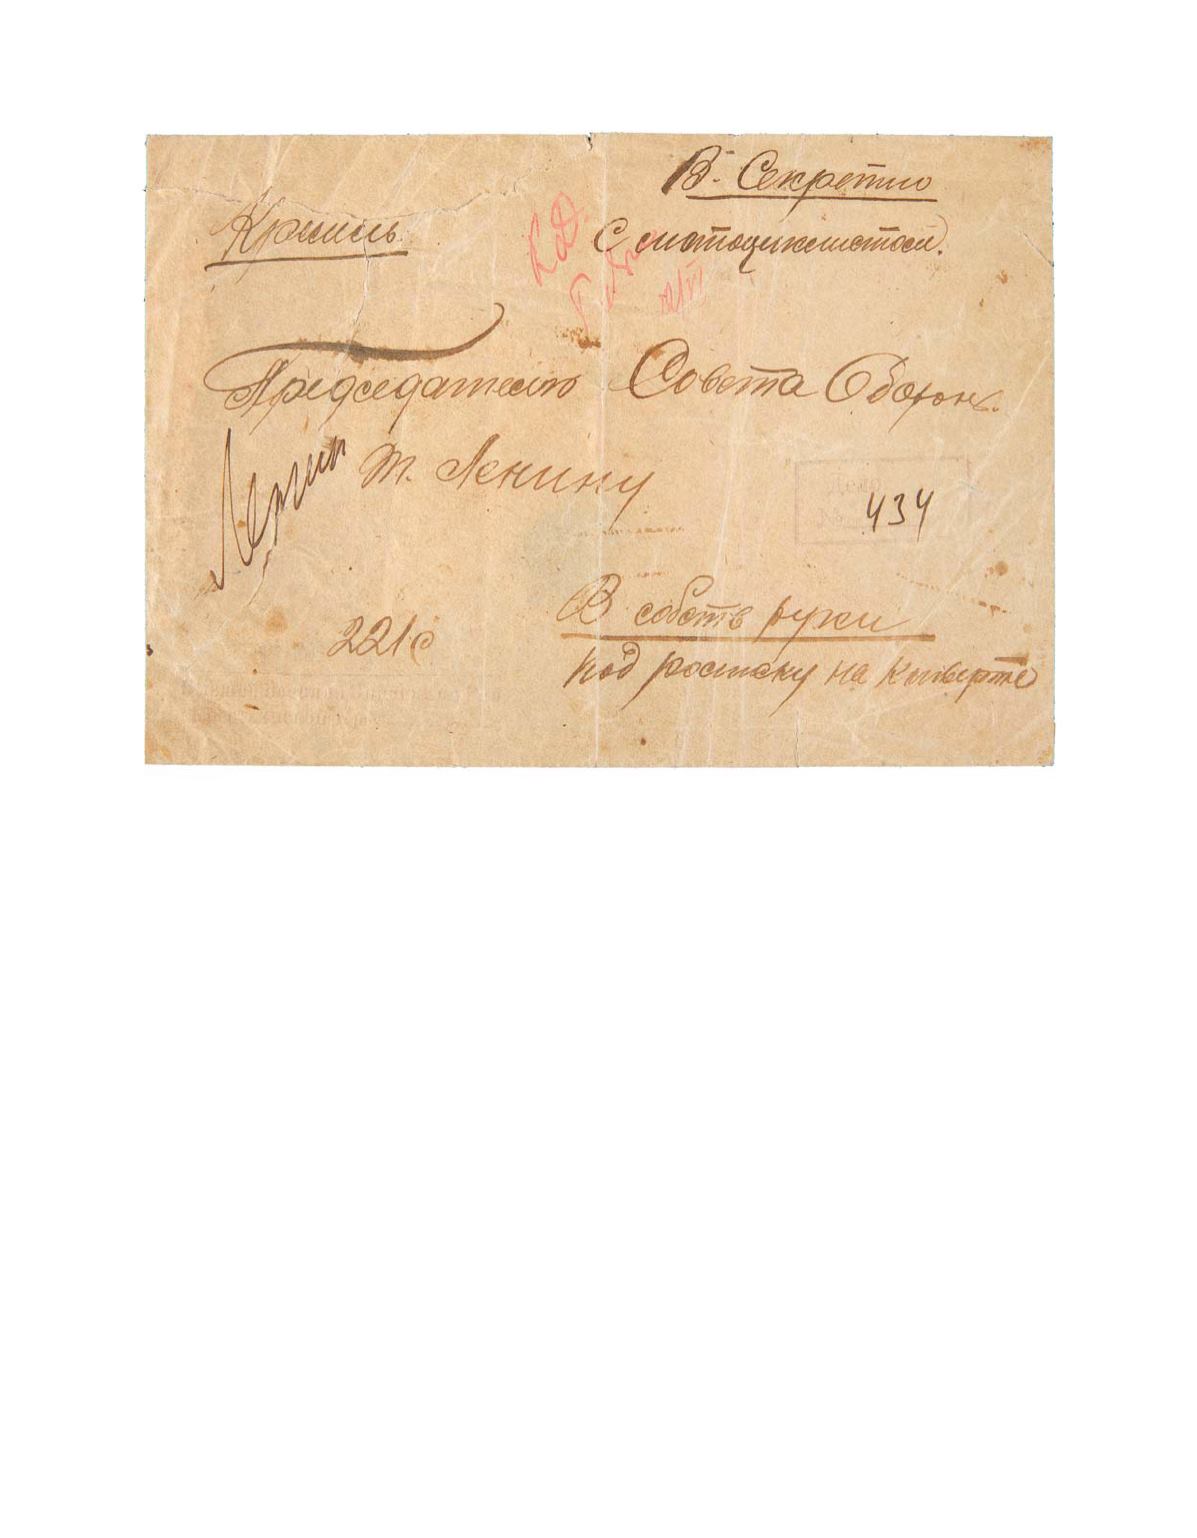 В. Секретно
Кремль
С мотоциклистом.
Председателю Совета Обороны.
т. Ленину
Ленин
434
221с
В собств руки
под росписку на конверте